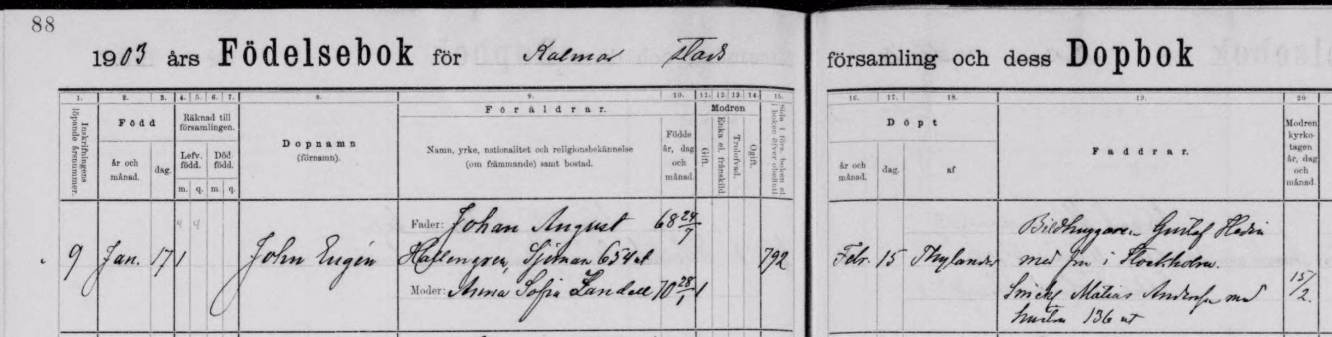 88
1903 års Födelsebok för Kalmar stads
församling och dess Dopbok
1. 2. 3. 4. 5. 6. 7. 8. 9. 10. 11. 12. 13. 14. 15.
16. 17. 18. 19. 20
Inskrifningens
löpande årsnummer.
Född
år och
månad.
dag.
Räknad till
församlingen.
Lefv.
född.
Död
född.
m. q. m. q.
Dopnamn
(förnamn).
Föräldrar.
Namn, yrke, nationalitet och religionsbekännelse
(om främmande) samt bostad.
Födde
år, dag
och
månad.
Modren
Gift.
Enka el. frånskild
Trolofvad.
Ogift.
Sida i förs. boken el.
i boken öfver obefintl.
Döpt
år och
månad.
dag.
af
Faddrar.
Modren
kyrko-
tagen
år, dag
och
månad.
4 4
9 Jan. 17 1 John Eugén
Fader: Johan August 68 24/7
Hallengren, Sjöman 654 at
Moder: Anna Sofia Landell 70 28/1 1
792
Febr. 15 Thylander
Bildhuggaren Gustaf Hedin
med fru i Stockholm.
Matias Andersson med
hustru 136 at
15/2.